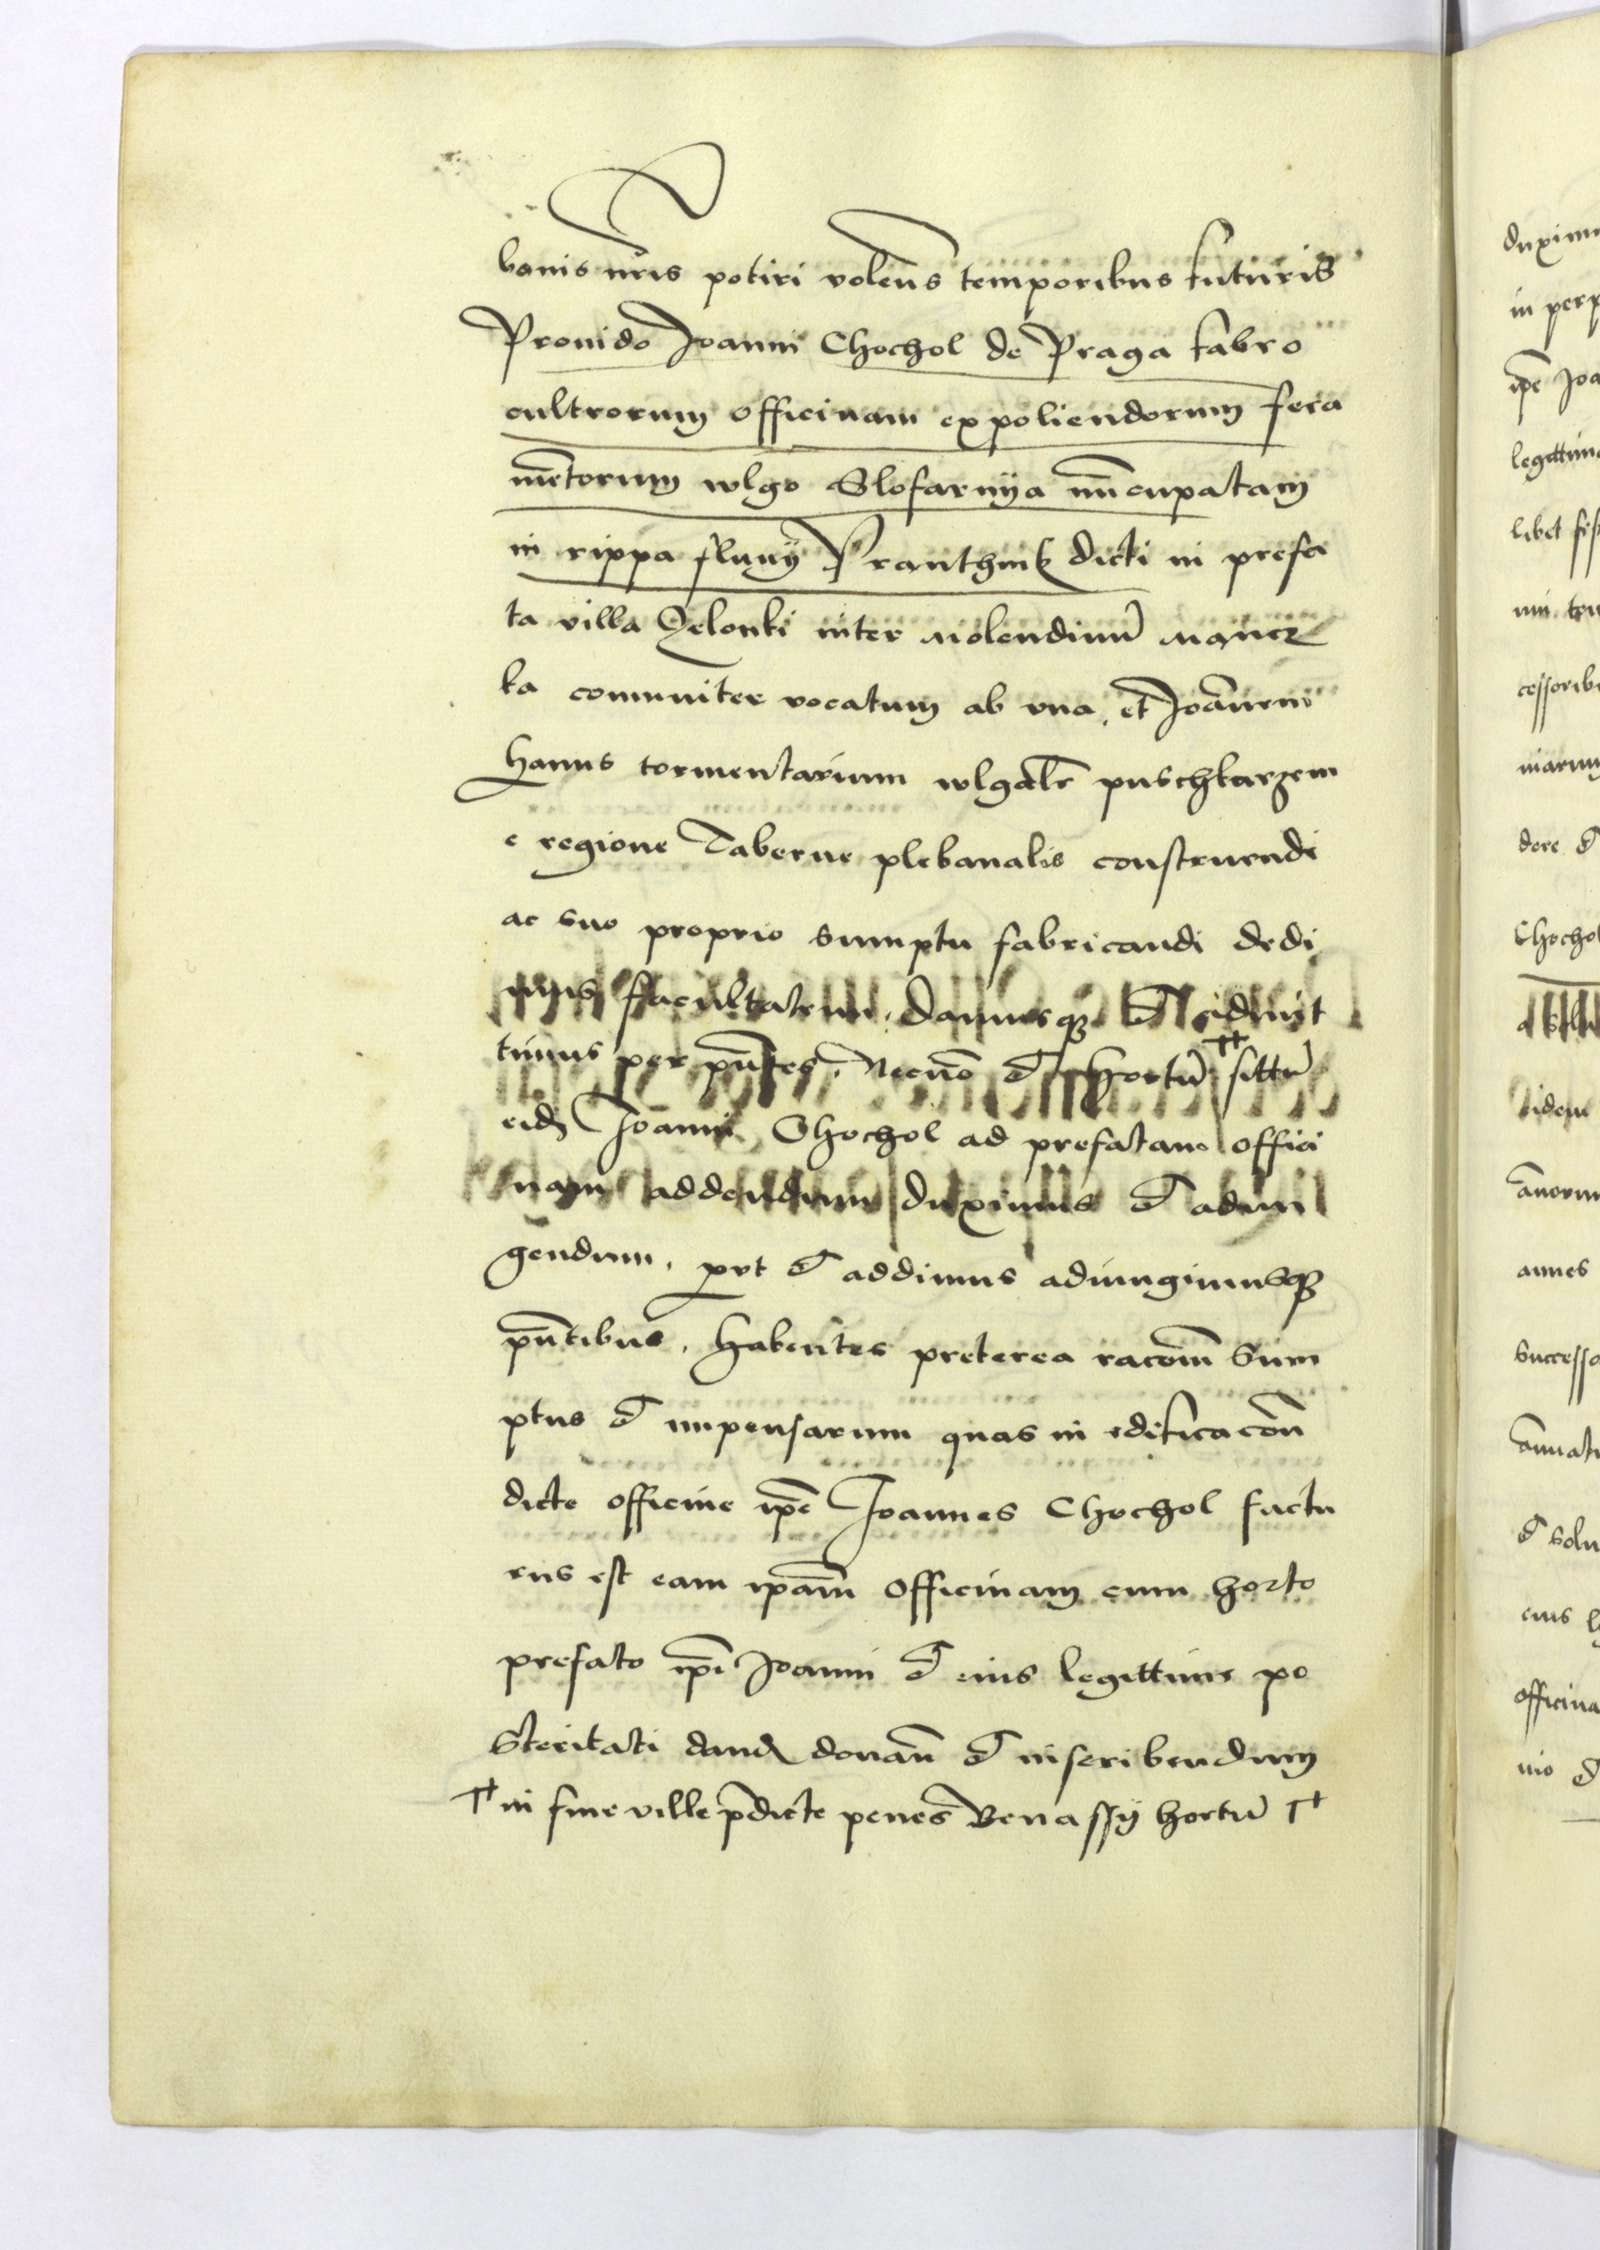 banis nr̃is potiri volens temporibus futuris
Prouido Joanni Chochol de Praga fabro
cultrorum officinam expoliendorum fera
mẽtorum wlgo Slofarnya nũcupatam
in rippa fluuij Pranthnik dicti in prefa
ta villa Zelonki inter molendinũ
ka comuniter vocatum ab vna, et Joãnem
Hanus tormentarium wlgalr̃ puschkarzem
e regione Taberne plebanalis construendi
ac suo proprio sumptu fabricandi dedi
mus facultatem, damusqȝ et
timus per pñtes, Necnõ et hortũ ╥ sittũ
eidẽ Joanni Chochol ad prefatam offici
nam addendum duximus et adiun
gendum, prt et addimus adiungimusqȝ
pñtibus, habentes preterea racõm sum
ptus et impensarum quas in edificacõn
dicte officine ip̃e Joannes Chochol factu
rus est eam ip̃am officinam cum horto
prefato ip̃i Joanni et eius legittime po
steritati dand donañ et inscribendum
╥ in fine ville p̃dicte penes Benassij hortũ ╥
duximu
in perp
ip̃e Joa
legittim
libet
cessoribu
niarum
dere et
Chochol
idem
ãnorum
annes
successo
ãnuati
et solu
eius
officina
nio et